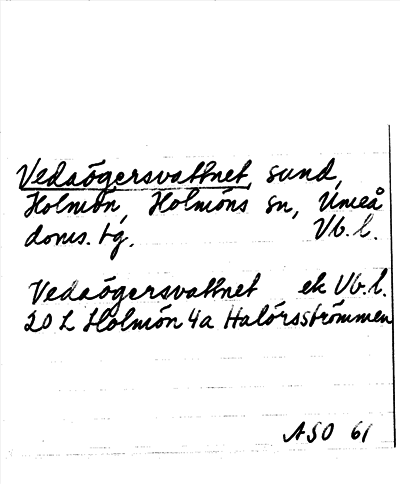 Vedaögersvattnet, sund,
Holmön, Holmöns sn, Umeå
doms. tg. Vb. l.
Vedaögersvattnet ek Vb. l.
20 L Holmön 4a Halörsströmmen
ASO 61